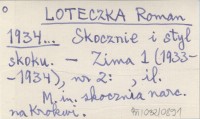 LOTECZKA Roman
1934... Skocznie i styl
skoku. - Zima 1 (1933-
-1934), nr 2: , il.
M. in. skocznia narc.
na Krokwi.